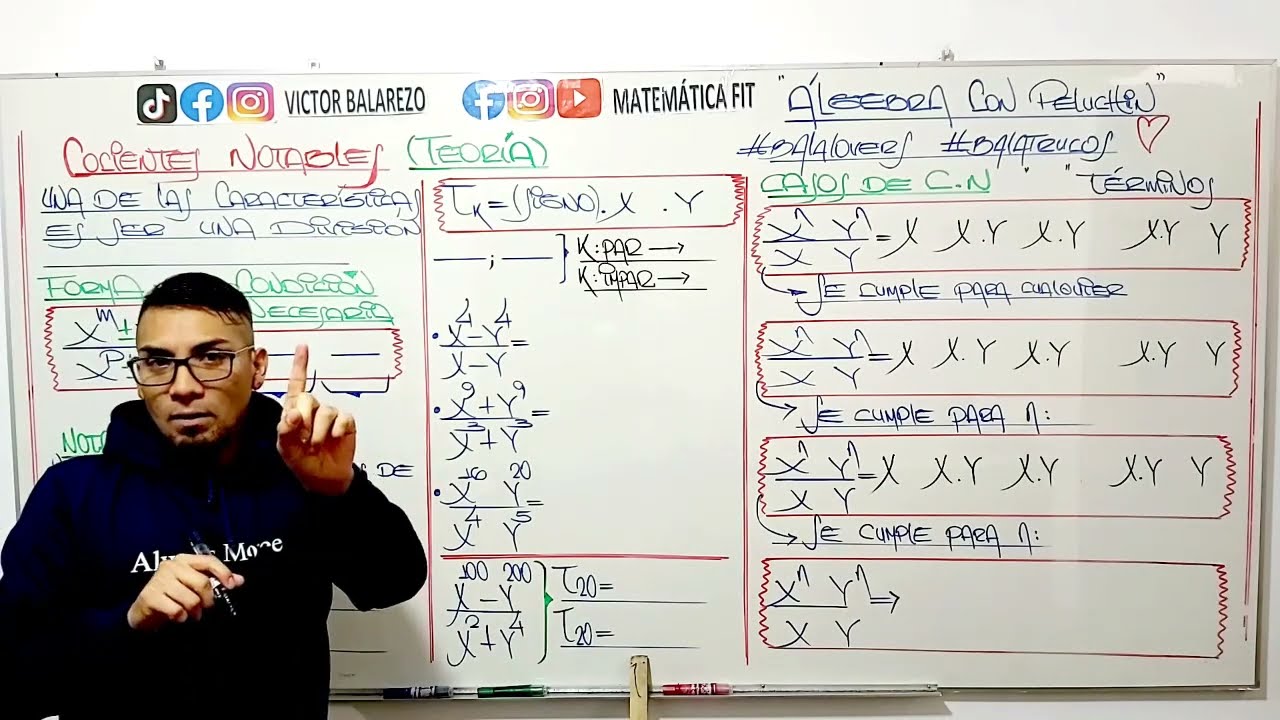 VICTOR BALAREZO
MATEMÁTICA FIT
"ÁLGEBRA CON PELUCHIN"
#BALALOVERS #BALATRUCOS
COCIENTES NOTABLES (TEORÍA)
UNA DE LAS CARACTERÍSTICAS
ES SER UNA DIVISIÓN
FORMA
CONDICIÓN
NECESARIA
X^m ±
X^p
NOT
DE
Always More
T_K = (SIGNO). X . Y
____ ; ____ } K: PAR →
K: IMPAR →
• X^4 - Y^4
X - Y =
• X^9 + Y^9
X^3 + Y^3 =
• X^16 Y^20
X^4 Y^5 =
X^100 - Y^200
X^2 + Y^4
T_20 =
T_20 =
CASOS DE C.N " " TÉRMINOS
X^n Y^n
X Y = X X.Y X.Y X.Y Y
→ SE CUMPLE PARA CUALQUIER
X^n Y^n
X Y = X X.Y X.Y X.Y Y
→ SE CUMPLE PARA n:
X^n Y^n
X Y = X X.Y X.Y X.Y Y
→ SE CUMPLE PARA n:
X^n Y^n
X Y ⇒